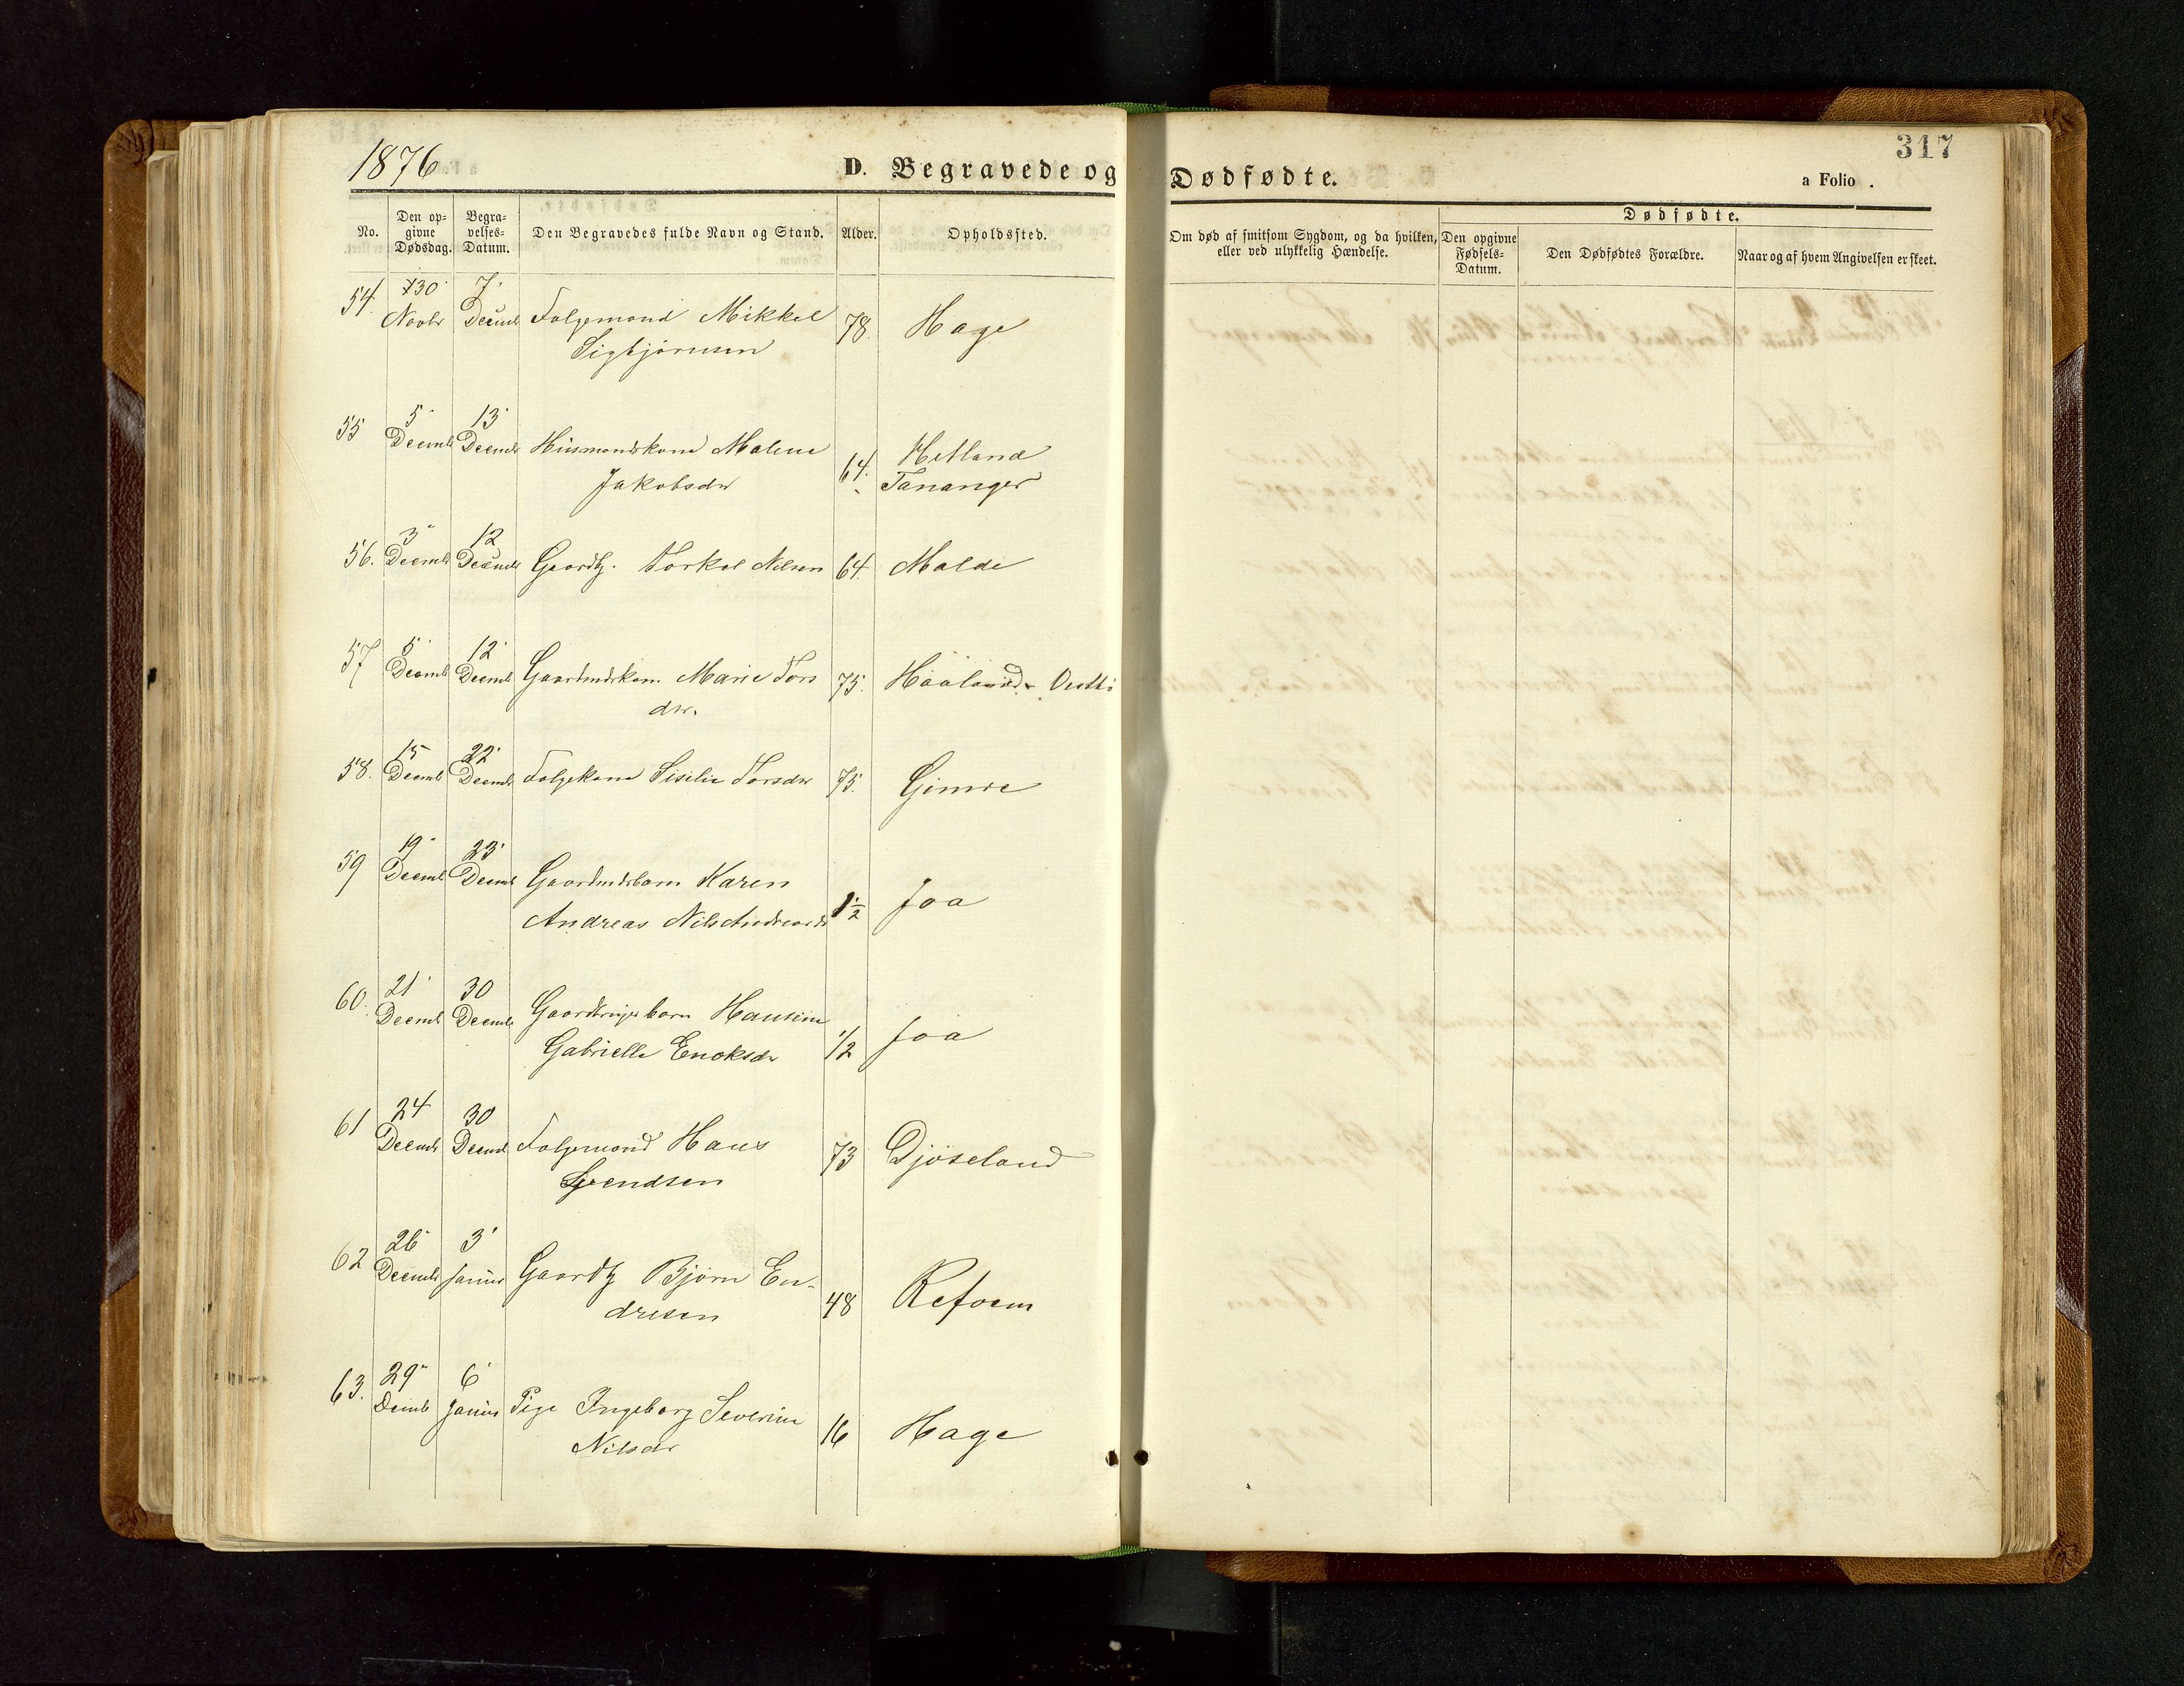 1876
D. Begravede og Dødfødte.
317
a Folio .
No. Den opgivne Dødsdag. Begravelses-Datum. Den Begravedes fulde Navn og Stand. Alder. Opholdssted.
Om død af smitsom Sygdom, og da hvilken, eller ved ulykkelig Hændelse. Den opgivne Fødsels-Datum. Dødfødte. Den Dødfødtes Forældre. Naar og af hvem Angivelsen er skeet.
54. 30 Novbr 7. Decmb Folgemand Mikkel 78. Hage
Sigbjørnsen
55 5 Decmb 13 Decmb Husmandskone Malene 64. Hetland
Jakobsdr Tananger
56. 3 Decmb 12 Decmb Gaardbg. Torkel Nilsen 64. Malde
57 5 Decmb 12 Decmb Gaardmdskone Marie Tors 75. Haaland
dtr.
58. 15 Decmb 22 Decmb Folgekone Sisilie Torsdr 75. Gimre
59 19 Decmb 23 Decmb Gaardmdsbarn Karen
Andreas Nils Andreasdr 1½ Joa
60. 21 Decmb 30 Decmb Gaardbrugerbarn Hansine
Gabrielle Enoksdr 1/2 Joa
61 24 Decmb 30 Decmb Folgemand Hans 73 Djøseland
Svendsen
62 26 Decmb 3 Januar Gaardbg Bjørn En-
dresen 48 Refsem
63. 29 Decmb 6 Januar Pige Ingeborg Severine
Nilsdr 16 Hage